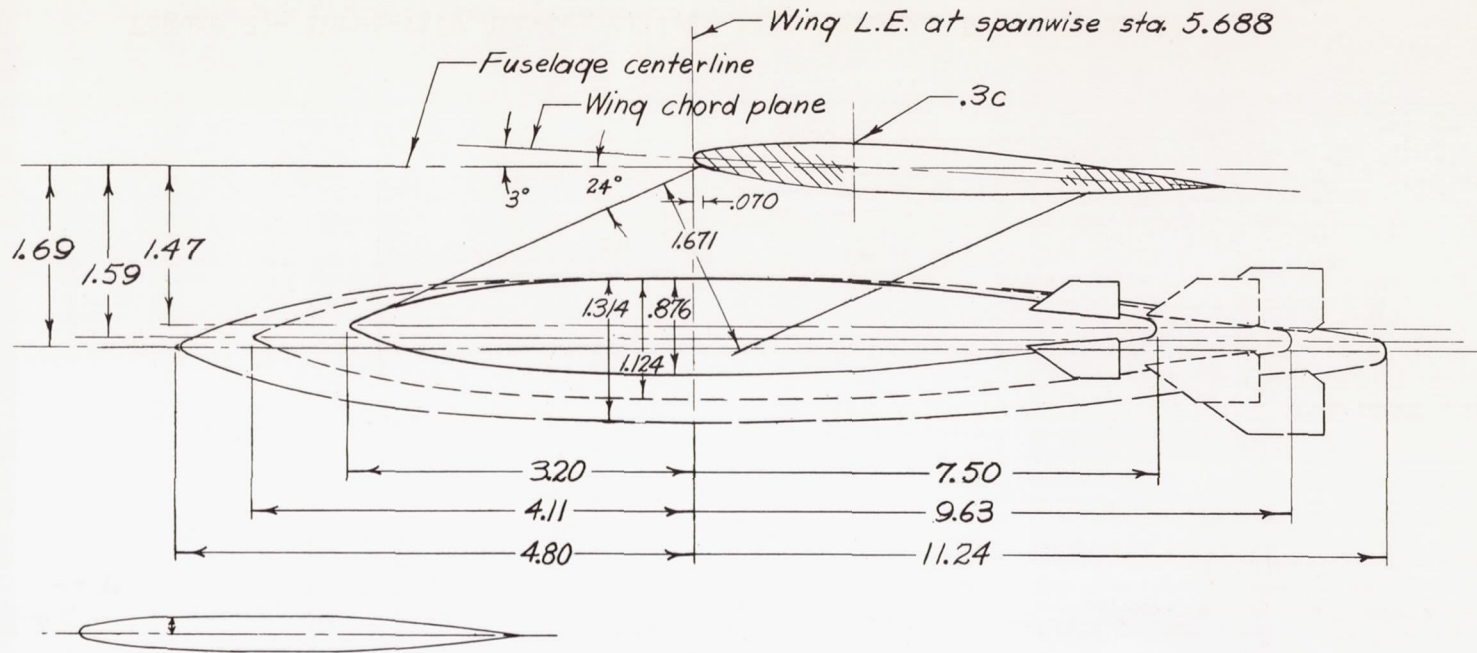 Wing L.E. at spanwise sta. 5.688
Fuselage centerline
Wing chord plane
.3c
3°
24°
.070
1.69
1.59
1.47
1.671
1.314
.876
1.124
3.20
7.50
4.11
9.63
4.80
11.24